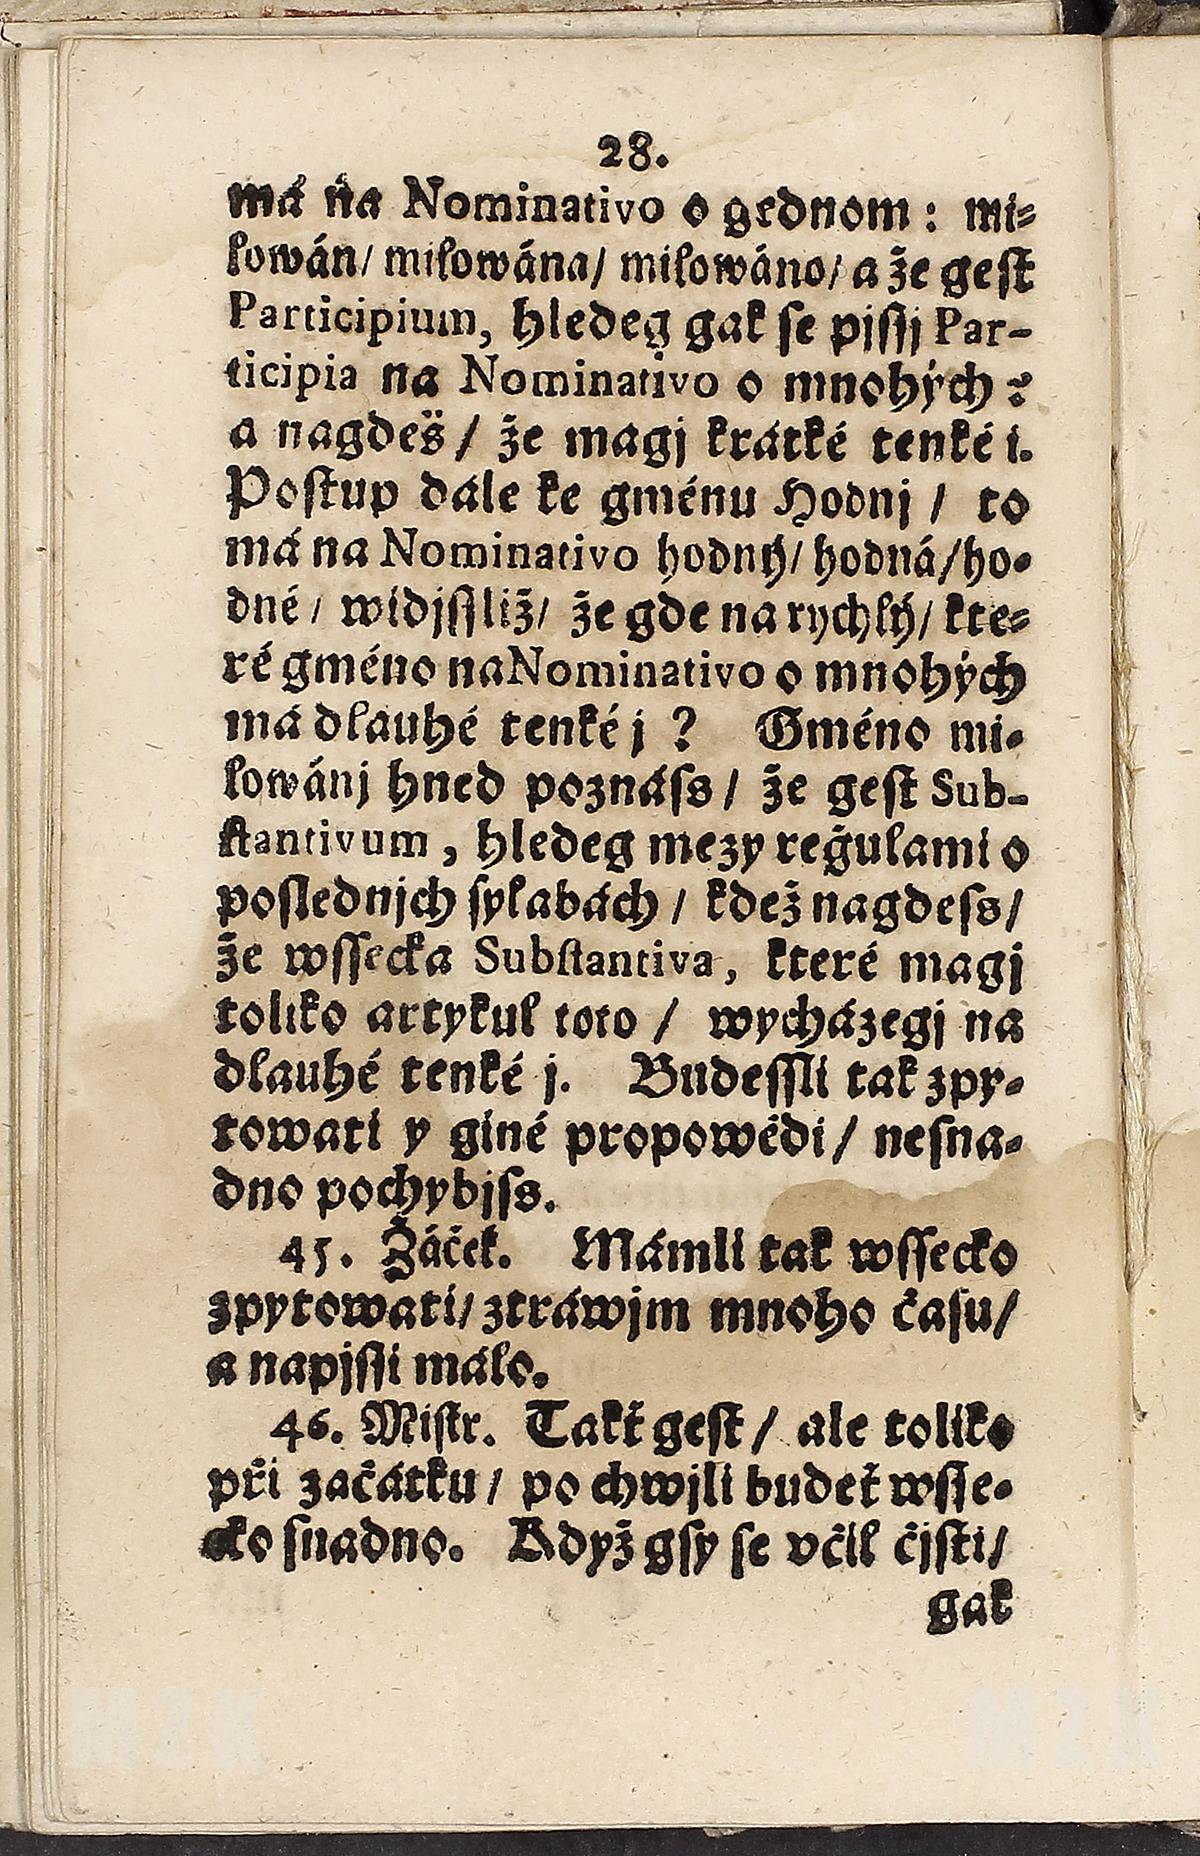 28.
má na Nominativo o gednom: mi⸗
lowán/ milowána/ milowáno/ a že geſt
Participium, hledeg gak ſe piſſj Par-
ticipia na Nominativo o mnohých?
a nagdeš/ že magj krátké tenké i.
Poſtup dále ke gménu Hodnj/ to
má na Nominativo hodný/ hodná/ ho⸗
dné/ widjſſliž/ že gde na rychlý/ kte⸗
ré gméno na Nominativo o mnohých
má dlauhé tenké j? Gméno mi⸗
lowánj hned poznáſs/ že geſt Sub-
ſtantivum, hledeg mezy reǧulami o
poſlednjch ſylabách/ kdež nagdeſs/
že wſſecka Subſtantiva, které magj
toliko artykul toto/ wycházegj na
dlauhé tenké j. Budeſſli tak zpy⸗
towati y giné propowědi/ neſna⸗
dno pochybjſs.
45. Žáček. Mámli tak wſſecko
zpytowati/ ztráwjm mnoho času/
a napjſſi málo.
46. Miſtr. Takť geſt/ ale toliko
při začátku/ po chwjli budeť wſſe⸗
cko ſnadno. Když gſy ſe včil čjſti/
gak
MZK
MZK